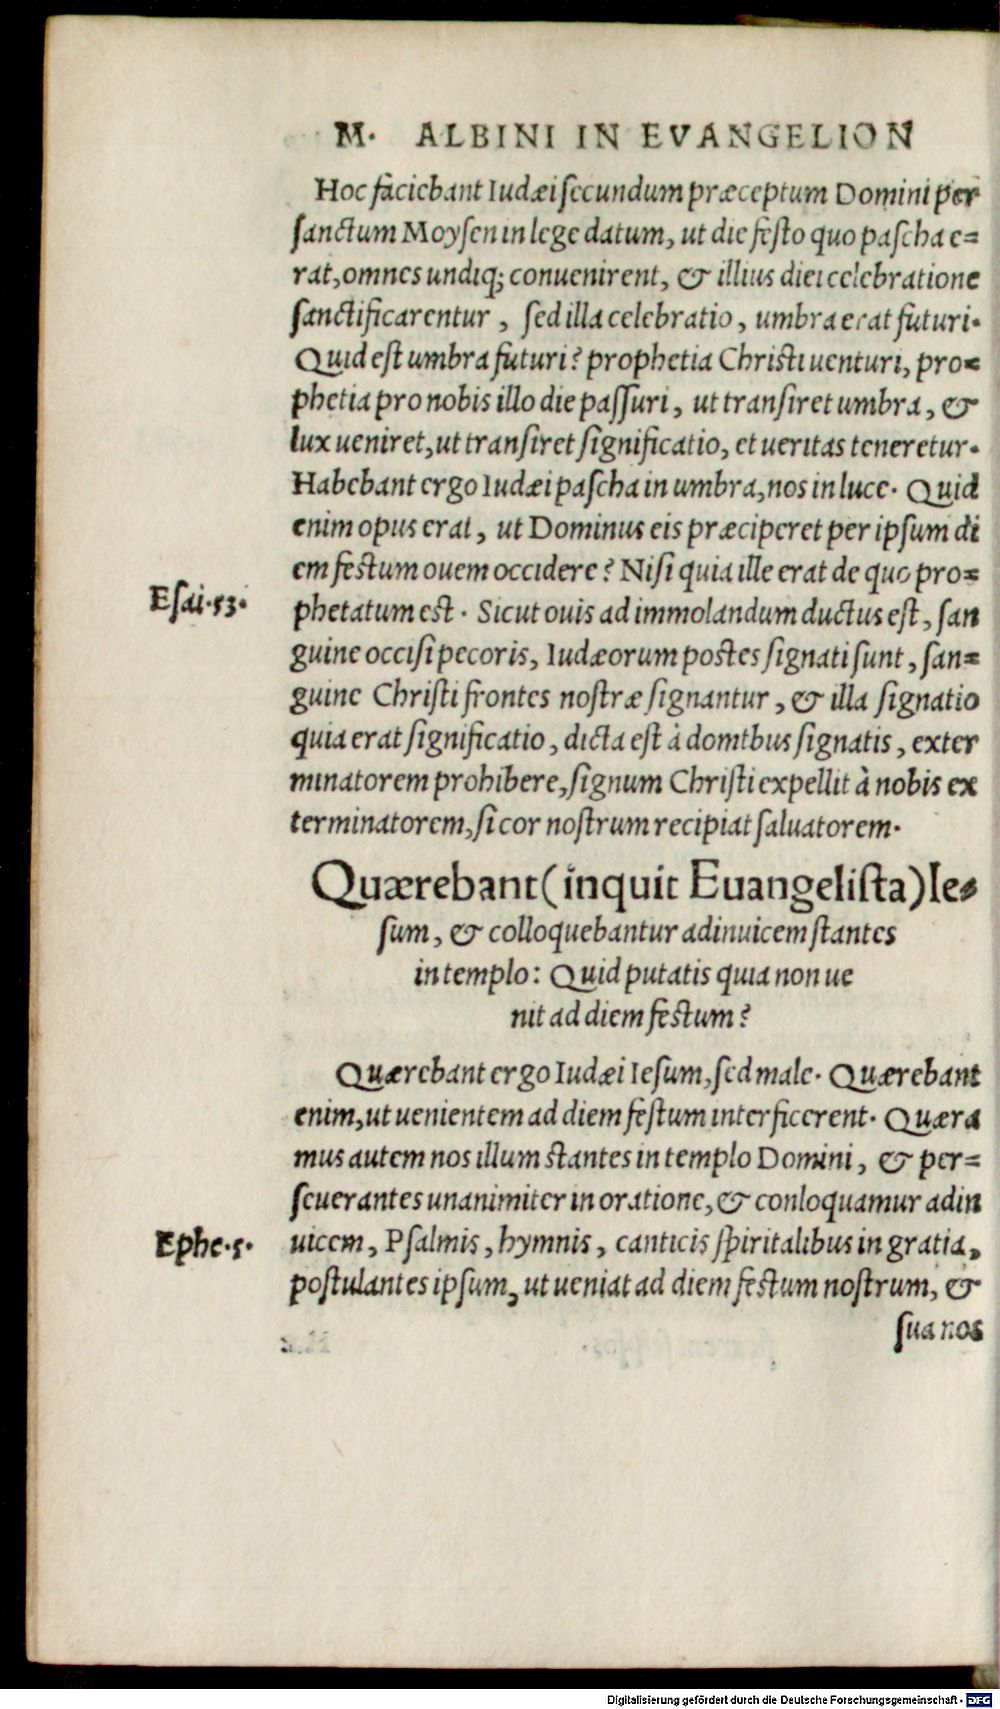 M. ALBINI IN EVANGELION
Hoc faciebant Iudæi secundum præceptum Domini per
sanctum Moysen in lege datum, ut die festo quo pascha e=
rat, omnes undiq; conuenirent, & illius diei celebratione
sanctificarentur, sed illa celebratio, umbra erat futuri.
Quid est umbra futuri? prophetia Christi uenturi, pro=
phetia pro nobis illo die passuri, ut transiret umbra, &
lux ueniret, ut transiret significatio, et ueritas teneretur.
Habebant ergo Iudæi pascha in umbra, nos in luce. Quid
enim opus erat, ut Dominus eis præciperet per ipsum di
em festum ouem occidere? Nisi quia ille erat de quo pro=
Esai.53.
phetatum est. Sicut ouis ad immolandum ductus est, san
guine occisi pecoris, Iudæorum postes signati sunt, san=
guine Christi frontes nostræ signantur, & illa signatio
quia erat significatio, dicta est à domibus signatis, exter
minatorem prohibere, signum Christi expellit à nobis ex
terminatorem, si cor nostrum recipiat saluatorem.
Quærebant (inquit Euangelista) Ie=
sum, & colloquebantur adinuicem stantes
in templo: Quid putatis quia non ue
nit ad diem festum?
Quærebant ergo Iudæi Iesum, sed male. Quærebant
enim, ut uenientem ad diem festum interficerent. Quæra
mus autem nos illum stantes in templo Domini, & per=
seuerantes unanimiter in oratione, & conloquamur adin
Ephe.5.
uicem, Psalmis, hymnis, canticis spiritalibus in gratia,
postulantes ipsum, ut ueniat ad diem festum nostrum, &
sua nos
Digitalisierung gefördert durch die Deutsche Forschungsgemeinschaft - DFG